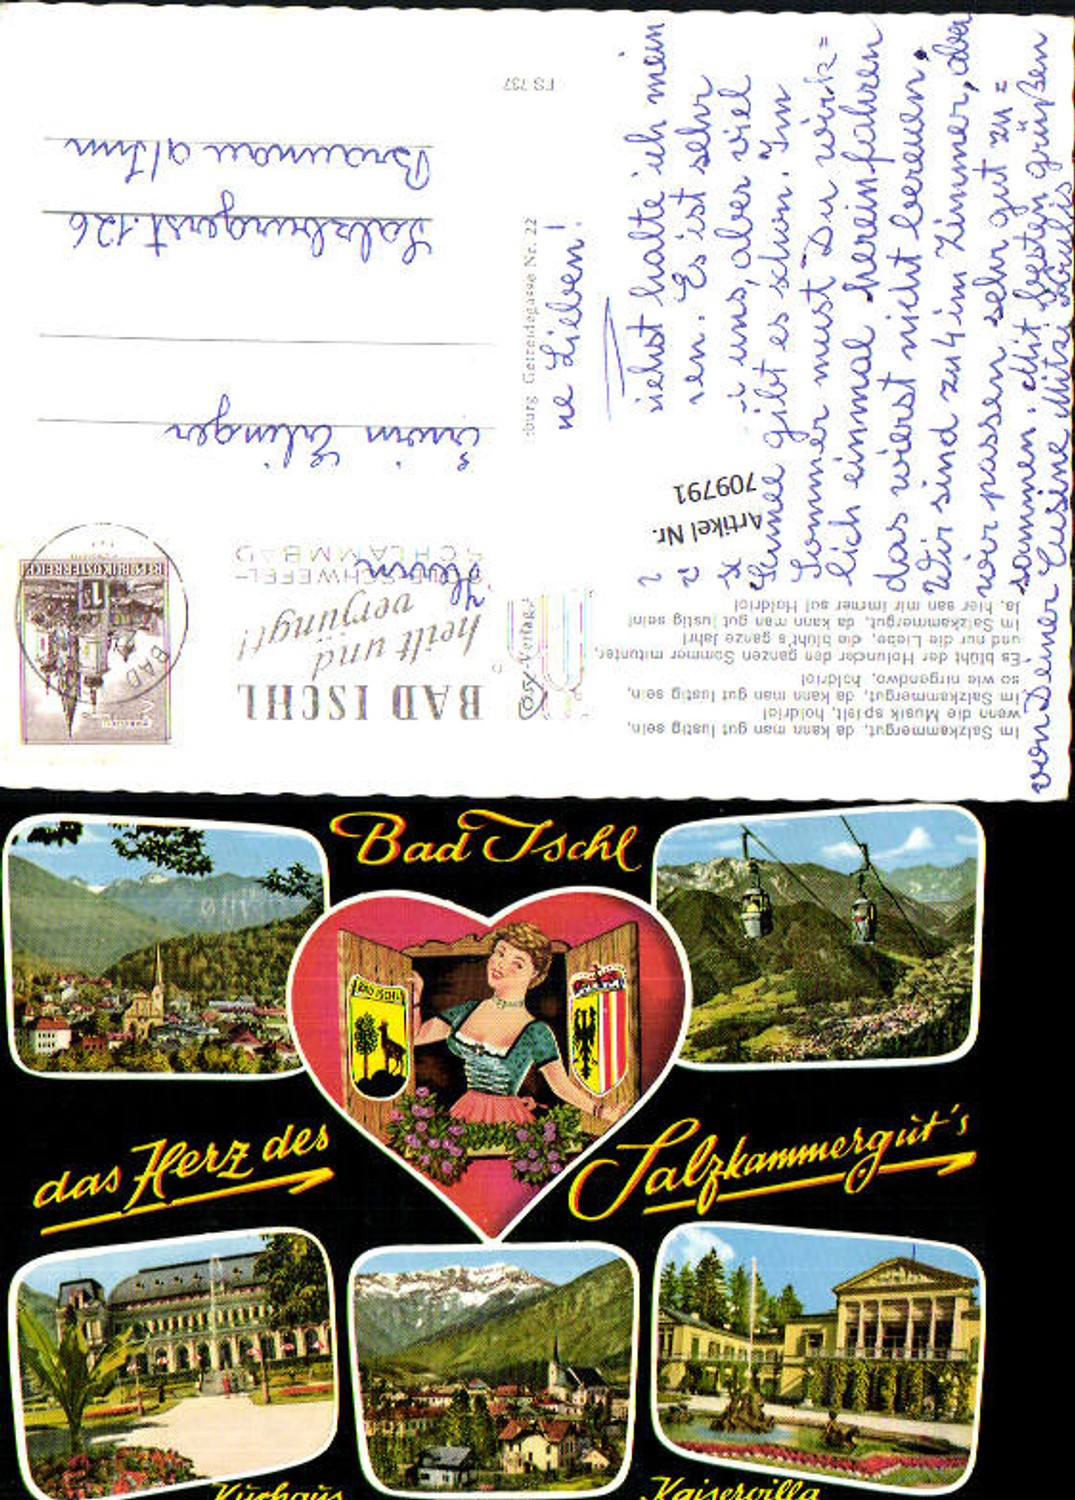 FS 737
Im Salzkammergut, da kann man gut lustig sein,
wenn die Musik spielt, holdrio!
Im Salzkammergut, da kann man gut lustig sein,
so wie nirgendwo, holdrio!
Es blüht der Holunder den ganzen Sommer mitunter,
und nur die Liebe, die blüht's ganze Jahr!
Im Salzkammergut, da kann man gut lustig sein!
Ja, hier san mir immer so! Holdrio!
Cosy-Verlag
burg, Getreidegasse Nr. 22
BAD ISCHL
heilt und
verjüngt!
SOLE-SCHWEFEL-
SCHLAMMBAD
REPUBLIK ÖSTERREICH
BAD
Artikel Nr.
709791
Herrn
Erwin Erlinger
Salzburgerst. 126
Braunau a/Inn
ne Lieben!
siehst halte ich mein
en. Es ist sehr
i uns, aber viel
gibt es schon. Im
Sommer must Du wirk=
lich einmal hereinfahren
das wierst nicht bereuen.
Wir sind zu 4 im Zimmer, aber
wir passen sehr gut zu=
sammen. Mit besten grüßen
von Deiner Cusine Mitzi
Bad Ischl
BAD ISCHL
das Herz des
Salzkammergut's
Kurhaus
Kaiservilla